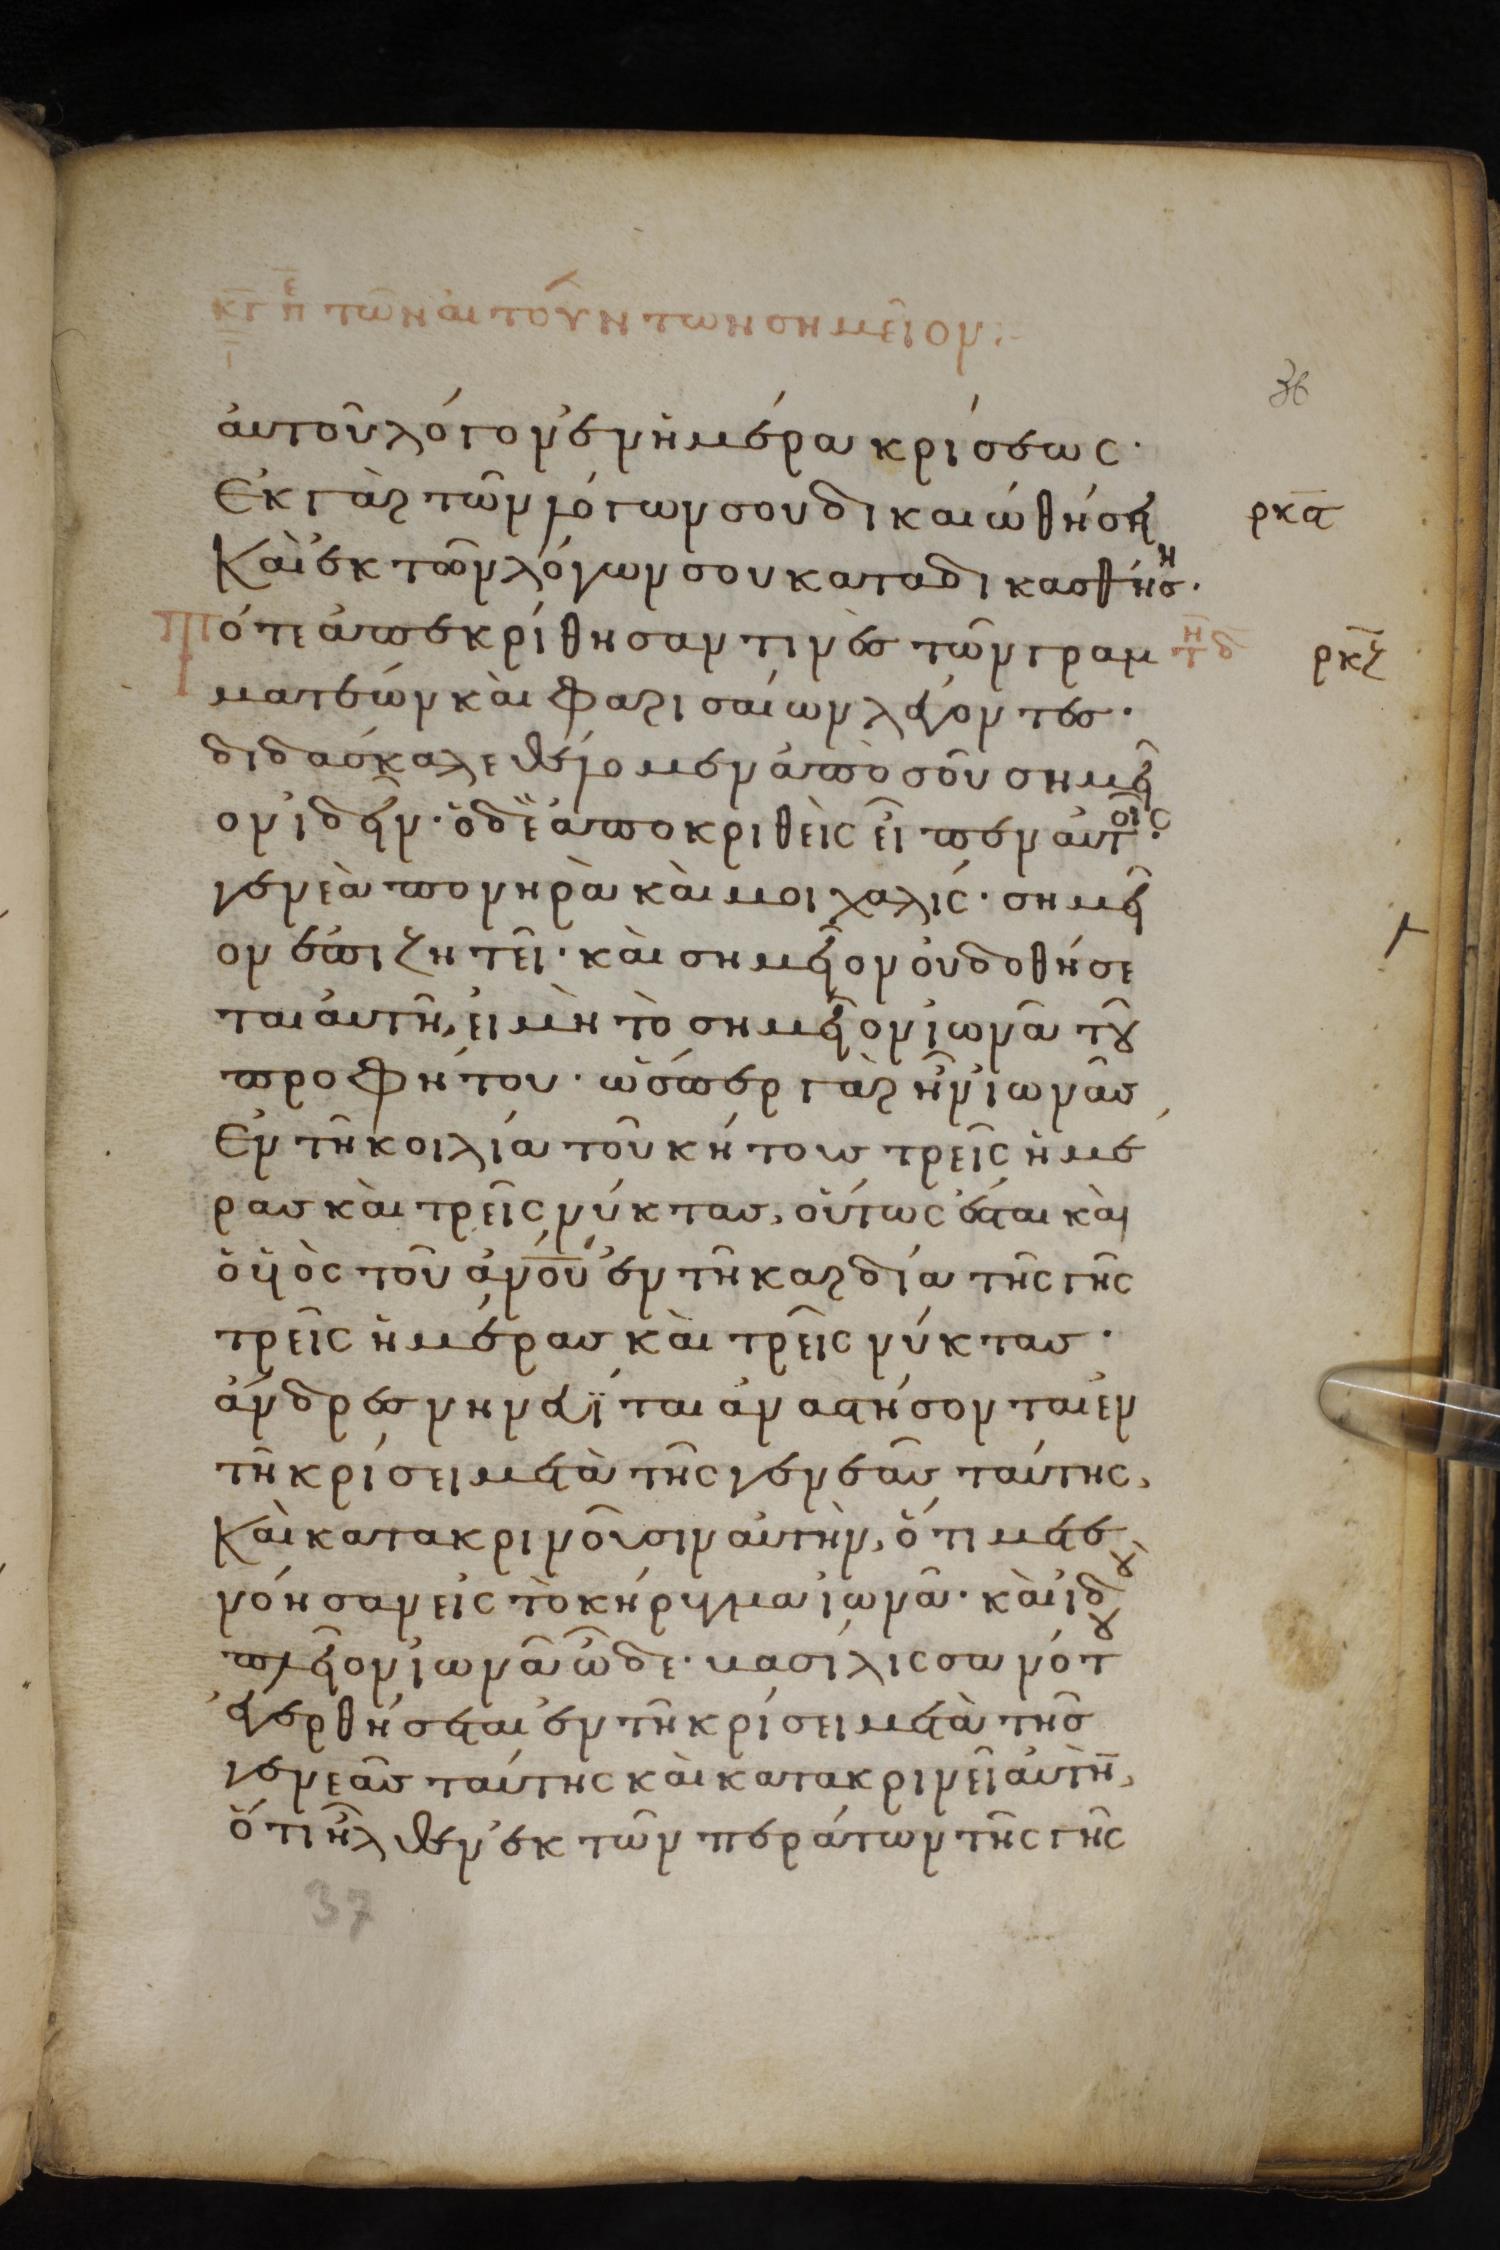 κγ πε τῶν αἰτούντων σημεῖον:
ι
36
αὐτοῦ λόγον ἐν ἡμέρα κρίσεως·
Ἐκ γὰρ τῶν λόγων σου δικαιώθήσῃ
ρκα
Καὶ ἐκ τῶν λόγων σου καταδικασθήσῃ·
Τότε ἀπεκρίθησαν τινὲς τῶν γραμ
τη δ
ρκζ
ματέων καὶ φαρισαίων λέγοντες·
διδάσκαλε θέλομεν ἀπὸ σοῦ σημεῖ
ον ἰδεῖν· ὁ δὲ ἀποκριθεὶς εἶπεν αὐτοῖς·
γενεὰ πονηρὰ καὶ μοιχαλίς· σημεῖ
ον ἐπιζητεῖ· καὶ σημεῖον οὐ δοθήσε
ται αὐτῆ, εἰ μὴ τὸ σημεῖον ἰωνᾶ τοῦ
προφήτου· ὥσπερ γὰρ ἦν ἰωνᾶς
Ἐν τῆ κοιλία τοῦ κήτους τρεῖς ἡμέ
ρας καὶ τρεῖς νύκτας, οὕτως ἔσται καὶ
ὁ υἱὸς τοῦ ἀνου ἐν τῆ καρδία τῆς γῆς
τρεῖς ἡμέρας καὶ τρεῖς νύκτας·
ἄνδρες νηνευΐται ἀναστήσονται ἐν
τῆ κρίσει μετὰ τῆς γενεᾶς ταύτης,
Καὶ κατακρινοῦσιν αὐτὴν, ὅτι μετε
νόησαν εἰς τὸ κήρυγμα ἰωνᾶ· καὶ ἰδοὺ
πλεῖον ἰωνᾶ ὧδε· βασίλισσα νότου
ἐγερθήσεται ἐν τῆ κρίσει μετὰ τῆς
γενεᾶς ταύτης καὶ κατακρινεῖ αὐτὴν,
ὅτι ἦλθεν ἐκ τῶν περάτων τῆς γῆς
37